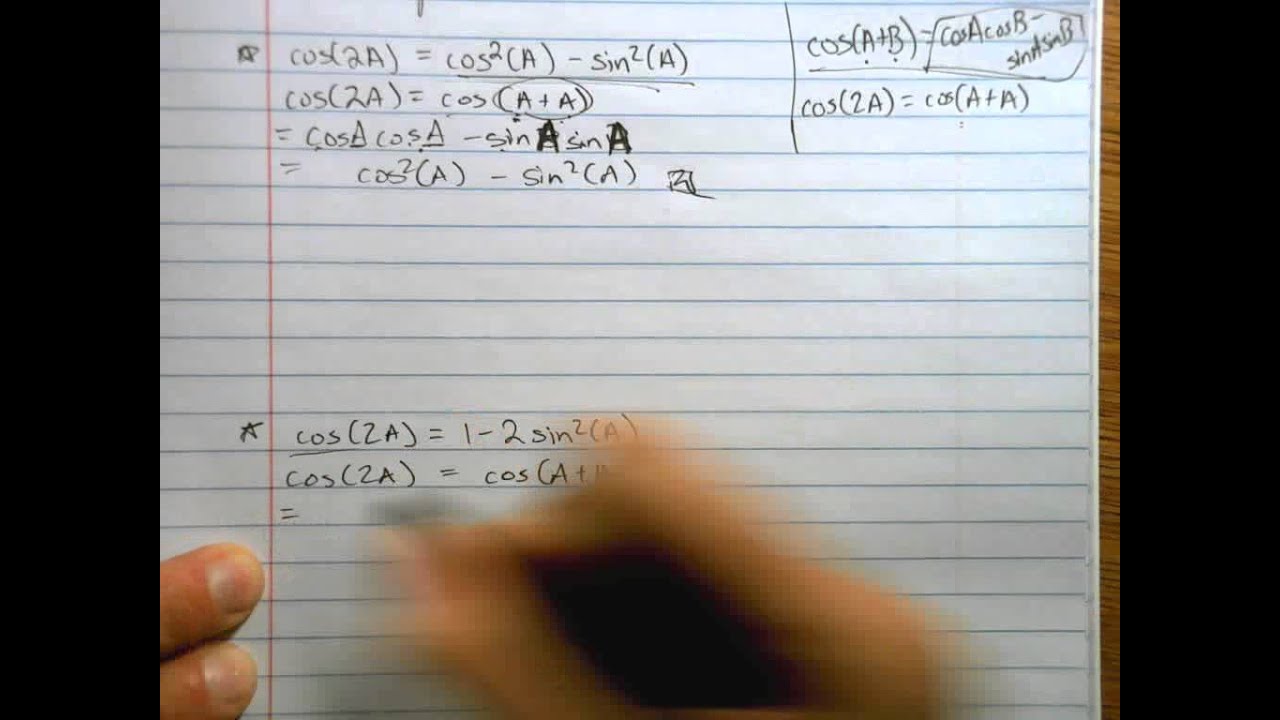 cos(2A) = cos²(A) - sin²(A)
cos(2A) = cos(A + A)
= cosA cosA - sinA sinA
= cos²(A) - sin²(A)
cos(A+B) = cosAcosB -
sinAsinB
cos(2A) = cos(A+A)
* cos(2A) = 1 - 2 sin²(A)
cos(2A) = cos(A+
=